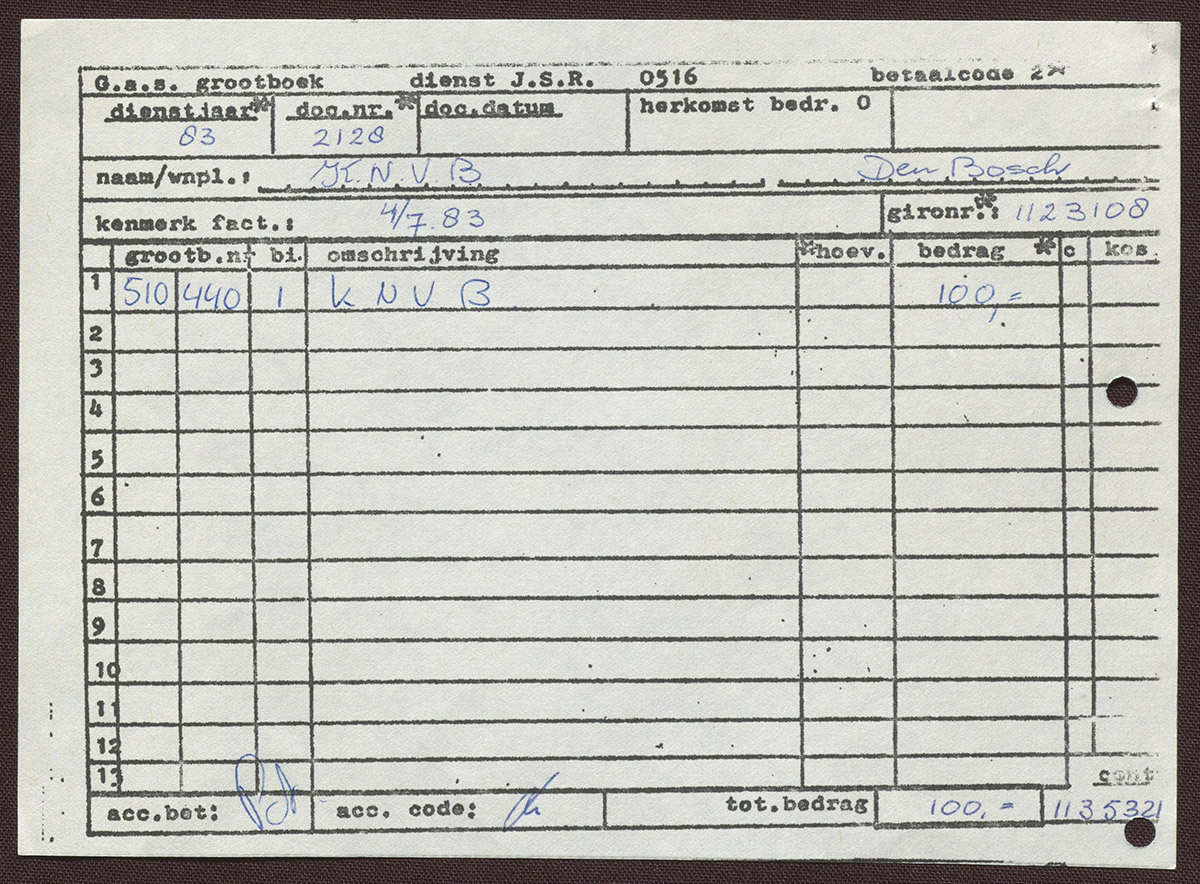 G.a.s. grootboek dienst J.S.R. 0516 betaalcode 2*
dienstjaar* doc.nr.* doc.datum herkomst bedr. 0
83 2128
naam/wnpl.: K.N.V.B Den Bosch
kenmerk fact.: 4/7.83 gironr.*: 1123108
grootb.nr bi. omschrijving *hoev. bedrag * c kos
1 510 440 1 K N V B 100,=
2
3
4
5
6
7
8
9
10
11
12
13 cont
acc.bet: acc. code: tot.bedrag 100,= 1135321